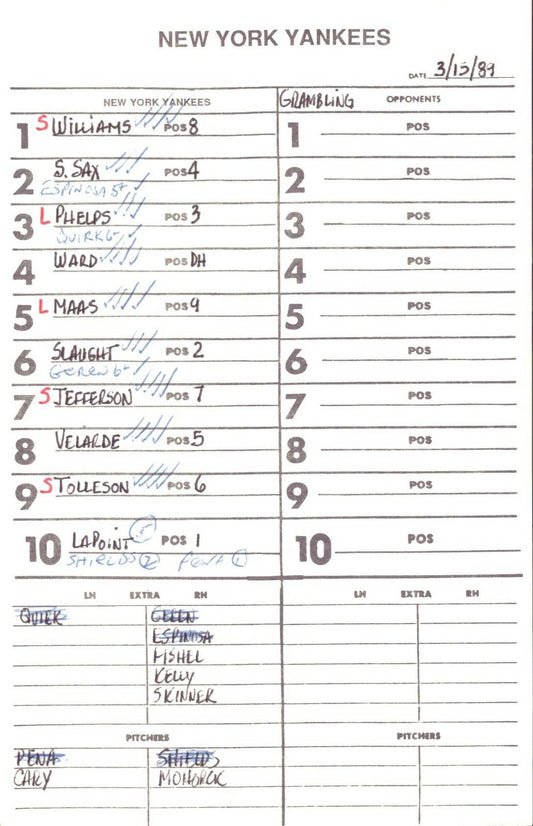 NEW YORK YANKEES
DATE 3/15/89
NEW YORK YANKEES
GRAMBLING OPPONENTS
1 S WILLIAMS POS 8
1 POS
2 S. SAX POS 4
ESPINOSA 5+
2 POS
3 L PHELPS POS 3
QUIRK 6+
3 POS
4 WARD POS DH
4 POS
5 L MAAS POS 9
5 POS
6 SLAUGHT POS 2
GEREN 6+
6 POS
7 S JEFFERSON POS 7
7 POS
8 VELARDE POS 5
8 POS
9 S TOLLESON POS 6
9 POS
10 LAPOINT 5 POS 1
SHIELDS 2 PENA 1
10 POS
LH EXTRA RH
LH EXTRA RH
QUIRK GEREN
ESPINOSA
FISHEL
KELLY
SKINNER
PITCHERS
PITCHERS
PENA SHIELDS
CARY MOHORCIC